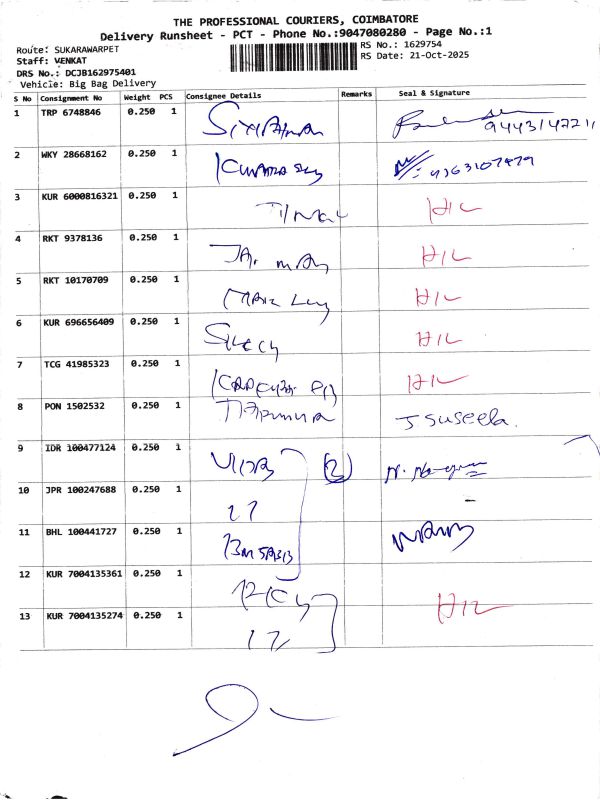 THE PROFESSIONAL COURIERS, COIMBATORE
Delivery Runsheet - PCT - Phone No.:9047080280 - Page No.:1
Route: SUKARAWARPET
RS No.: 1629754
Staff: VENKAT
RS Date: 21-Oct-2025
DRS No.: DCJB162975401
Vehicle: Big Bag Delivery
S No Consignment No Weight PCS Consignee Details Remarks Seal & Signature
1 TRP 6748846 0.250 1 9443147211
2 WKY 28668162 0.250 1 9363107479
3 KUR 6000816321 0.250 1 H/L
4 RKT 9378136 0.250 1 H/L
5 RKT 10170709 0.250 1 H/L
6 KUR 696656409 0.250 1 H/L
7 TCG 41985323 0.250 1 H/L
8 PON 1502532 0.250 1 J Suseela.
9 IDR 100477124 0.250 1 (2)
10 JPR 100247688 0.250 1
11 BHL 100441727 0.250 1
12 KUR 7004135361 0.250 1 H/L
13 KUR 7004135274 0.250 1